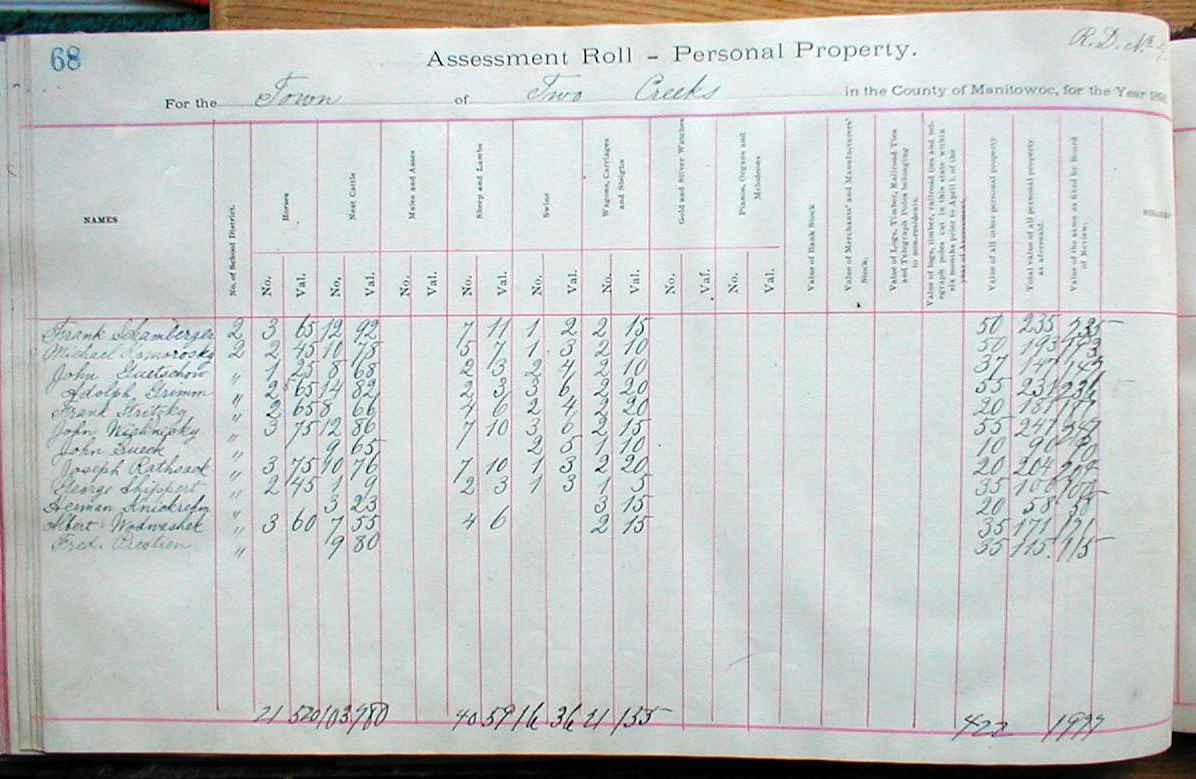 68
R. D. No.
Assessment Roll – Personal Property.
For the Town of Two Creeks in the County of Manitowoc, for the Year
NAMES
No. of School District.
Horses
Neat Cattle
Mules and Asses
Sheep and Lambs
Swine
Wagons, Carriages and Sleighs
Gold and Silver Watches
Pianos, Organs and Melodeons
Value of Bank Stock
Value of Merchants' and Manufacturers' Stock.
Value of Logs, Timber, Railroad Ties and Telegraph Poles belonging to non-residents.
Value of logs, timber, railroad ties and telegraph poles cut in this state within six months prior to April 1, of the year of Assessment.
Value of all other personal property
Total value of all personal property as aforesaid.
Value of the same as fixed by Board of Review.
No. Val. No. Val. No. Val. No. Val. No. Val. No. Val. No. Val. No. Val.
Frank 2 3 65 12 92 7 11 1 2 2 15 50 235 235
Michael 2 2 75 10 78 5 7 1 3 2 10 50 193 193
John Guetschow " 1 25 8 68 2 3 2 4 2 10 37 147 147
Adolph Grimm " 2 65 14 82 2 3 3 6 2 20 55 231 231
Frank Kritzky " 2 65 8 66 4 6 2 4 2 20 20 181 181
John " 3 75 12 86 7 10 3 6 2 15 55 247 247
John Lueck " 9 65 2 5 1 10 10 90 90
Joseph Rathsack " 3 75 10 76 7 10 1 3 2 20 20 204 204
George Shippert " 2 45 1 9 2 3 1 3 1 5 35 100 100
Herman " 3 23 3 15 20 58 58
Albert " 3 60 7 55 4 6 2 15 35 171 171
Fred. " 9 80 35 115 115
21 550 103 780 40 59 16 36 21 155 422 1977